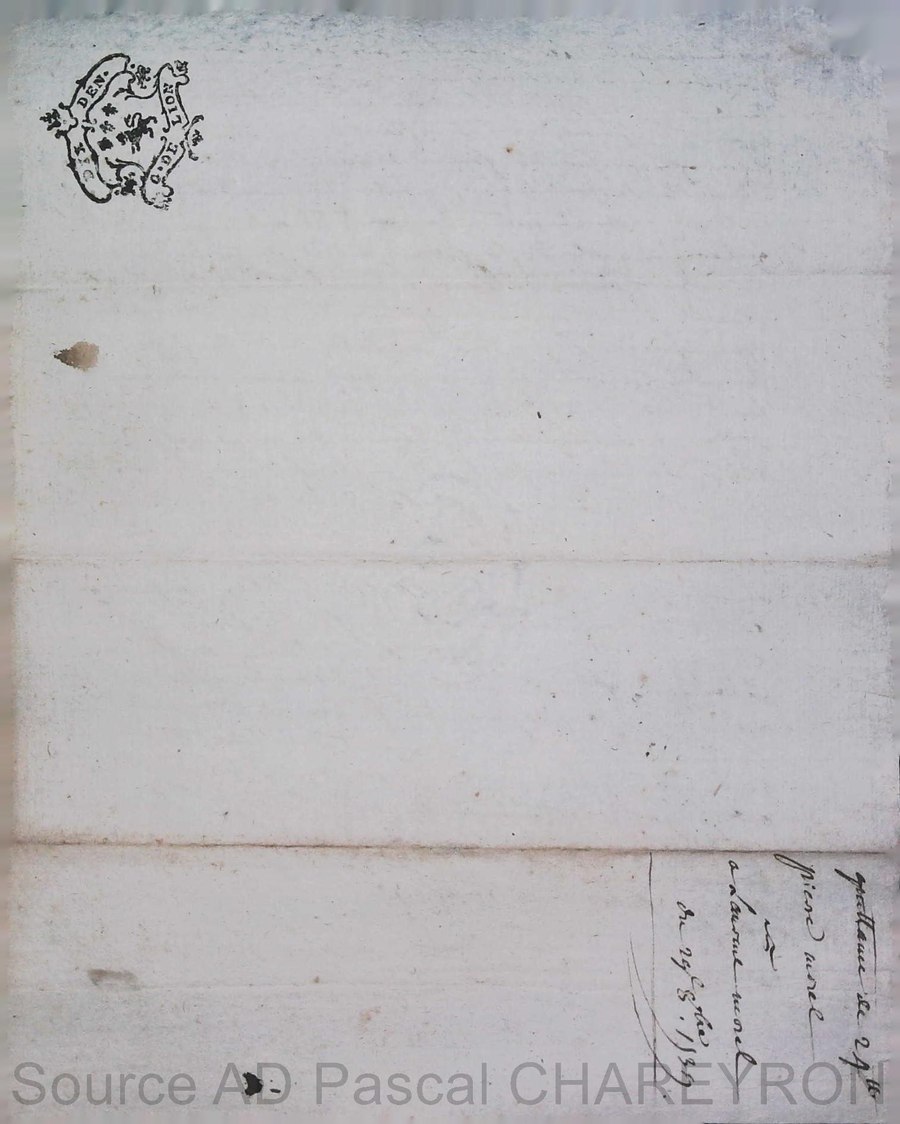 DIX DEN.
G. DE LION
quittance de 29 ₶
pierre morel
a Laurent morel
du 29e 8bre
Source AD Pascal CHAREYRON